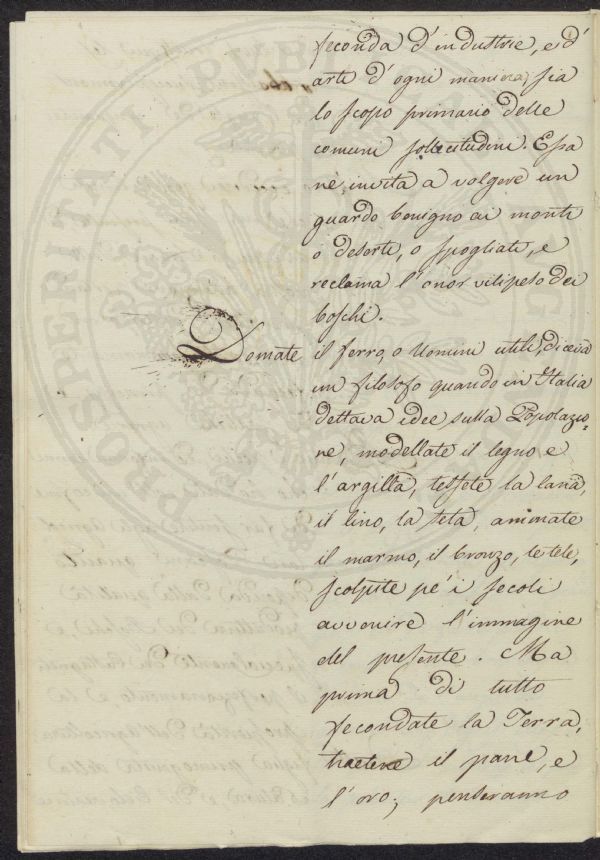 feconda d'industrie, e d'
arti d'ogni maniera, sia
lo scopo primario delle
comuni sollecitudini. Essa
ne invita a volgere un
guardo benigno ai monti
o deserti, o spogliati, e
reclama l'onor vilipeso dei
boschi.
Domate il ferro, o Uomini utili, diceva
un filosofo quando in Italia
dettava idee sulla Popolazio=
ne, modellate il legno e
l'argilla, tessete la lana,
il lino, la seta, animate
il marmo, il bronzo, le tele,
scolpite pe' i secoli
avvenire l'immagine
del presente. Ma
prima di tutto
fecondate la Terra,
traetene il pane, e
l'oro; penseranno
PROSPERITATI PUBL